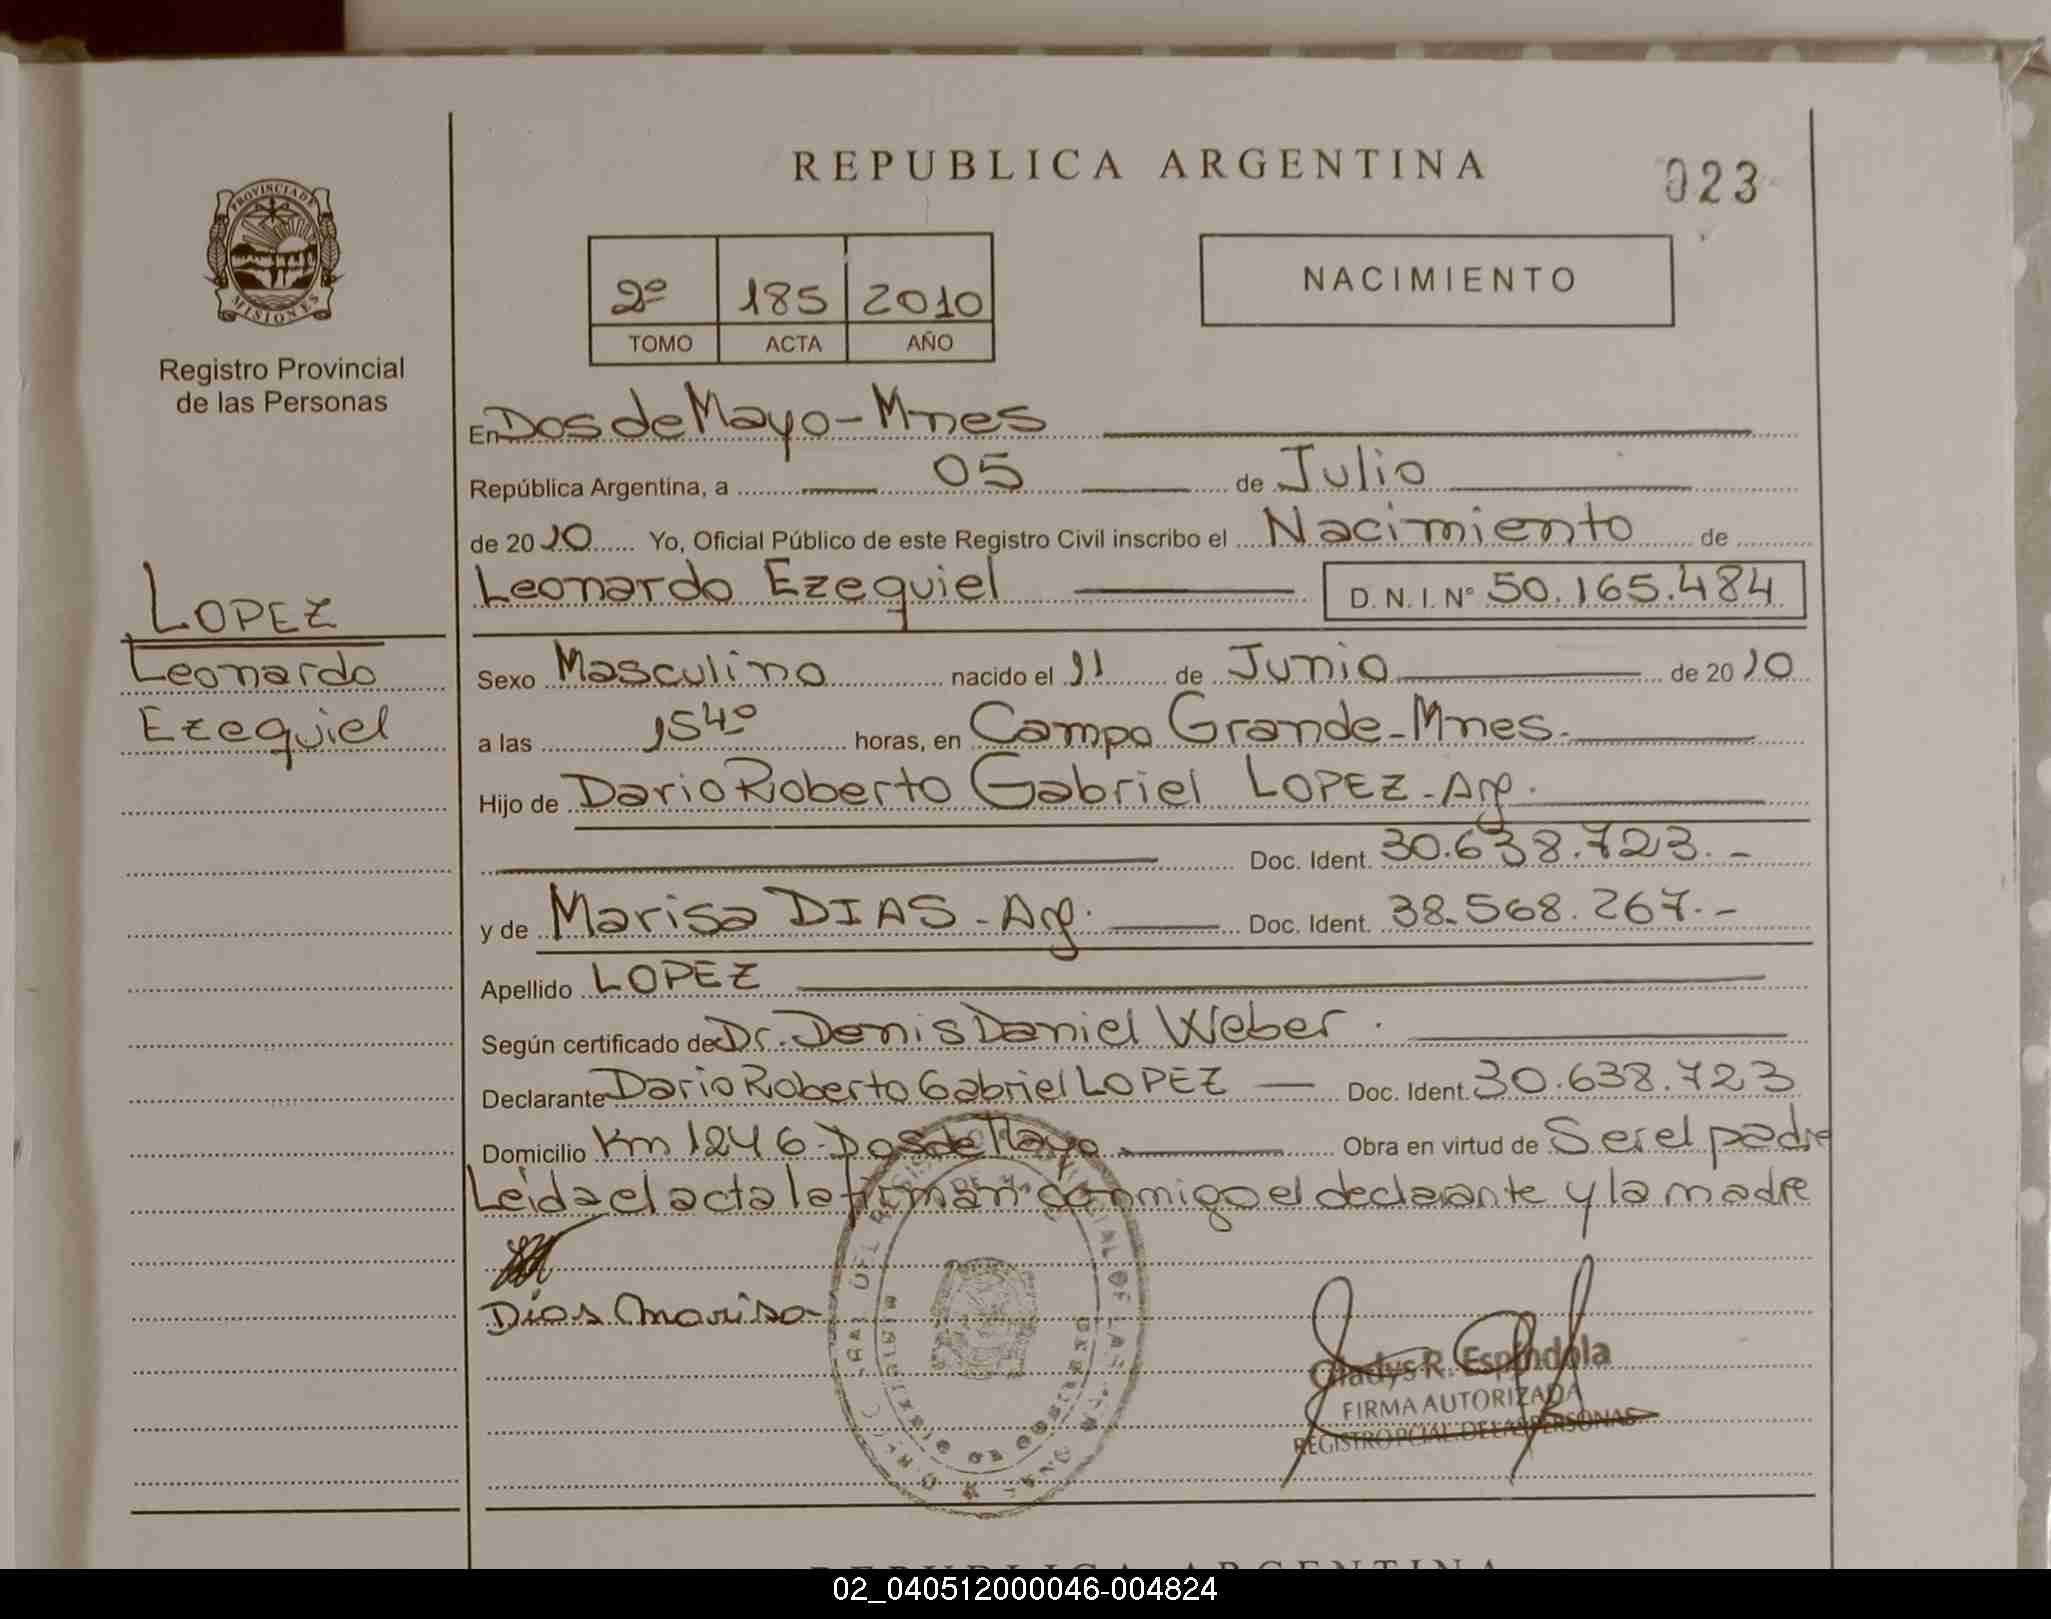 REPUBLICA ARGENTINA
023
PROVINCIA DE
MISIONES
Registro Provincial
de las Personas
2º 185 2010
TOMO ACTA AÑO
NACIMIENTO
En Dos de Mayo - Mnes
República Argentina, a 05 de Julio
de 2010 Yo, Oficial Público de este Registro Civil inscribo el Nacimiento de
Leonardo Ezequiel D. N. I. Nº 50.165.484
LOPEZ
Leonardo
Ezequiel
Sexo Masculino nacido el 11 de Junio de 2010
a las 1540 horas, en Campo Grande - Mnes.
Hijo de Dario Roberto Gabriel LOPEZ - Arg.
Doc. Ident. 30.638.723.-
y de Marisa DIAS - Arg. Doc. Ident. 38.568.267.-
Apellido LOPEZ
Según certificado de Dr. Denis Daniel Weber.
Declarante Dario Roberto Gabriel LOPEZ Doc. Ident. 30.638.723
Domicilio Km 1246 - Dos de Mayo Obra en virtud de Ser el padre
Leida el acta la firman conmigo el declarante y la madre
Dias Marisa
Gladys R. Espindola
FIRMA AUTORIZADA
REGISTRO PCIAL. DE LAS PERSONAS
REPUBLICA ARGENTINA
02_040512000046-004824